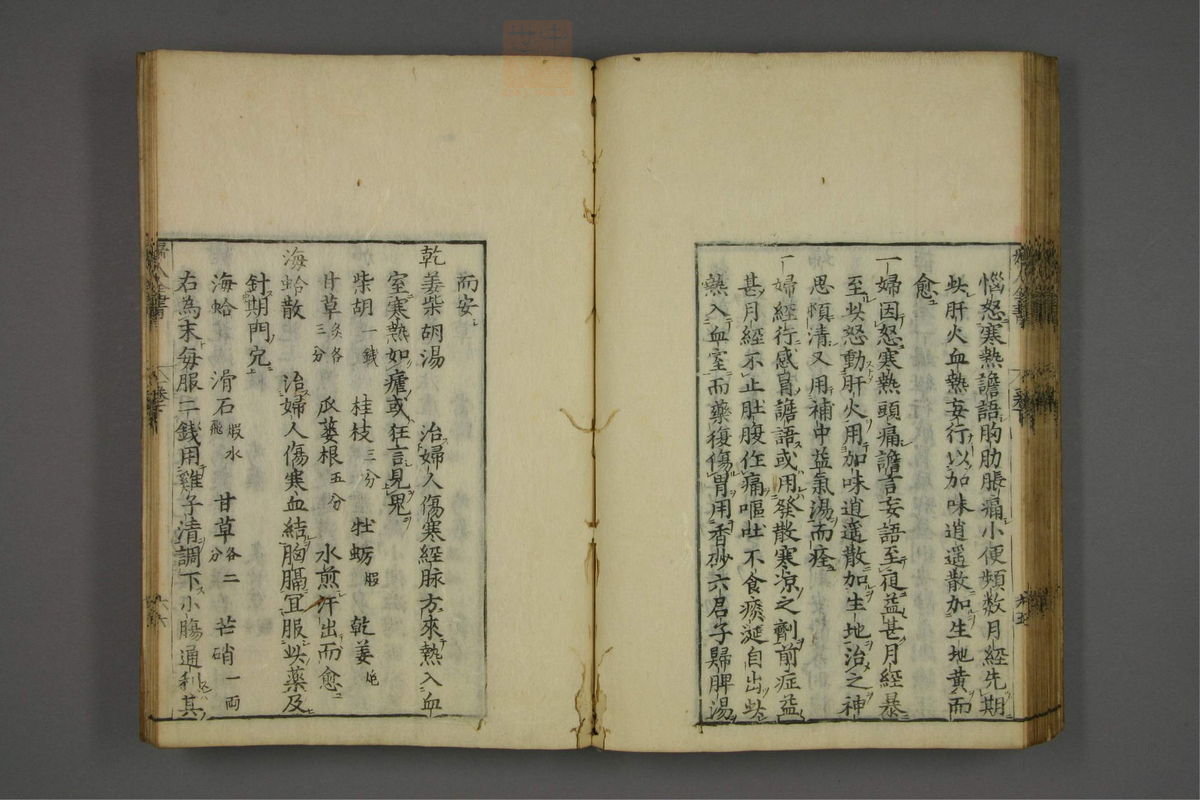 惱怒寒熱譫語胸肋脹痛小便頻數月經先期
此肝火血熱妄行以加味逍遥散加生地黄而
愈
一婦因怒寒熱頭痛譫言妄語至夜益甚月經暴
至此怒動肝火用加味逍遥散加生地治之神
思頓清又用補中益氣湯而痊
一婦經行感冒譫語或用發散寒凉之劑前症益
甚月經不止肚腹作痛嘔吐不食痰涎自出此
熱入血室而藥復傷胃用香砂六君子歸脾湯
而安
乾姜柴胡湯 治婦人傷寒經脉方來熱入血
室寒熱如瘧或狂言見鬼
柴胡一錢 桂枝三分 牡蛎煆 乾姜炮
甘草炙各三分 瓜蔞根五分 水煎汗出而愈
海蛤散 治婦人傷寒血結胸膈宜服此藥及
針期門穴
海蛤 滑石煆水飛 甘草各二分 芒硝一両
右為末每服二錢用雞子清調下小腸通利其